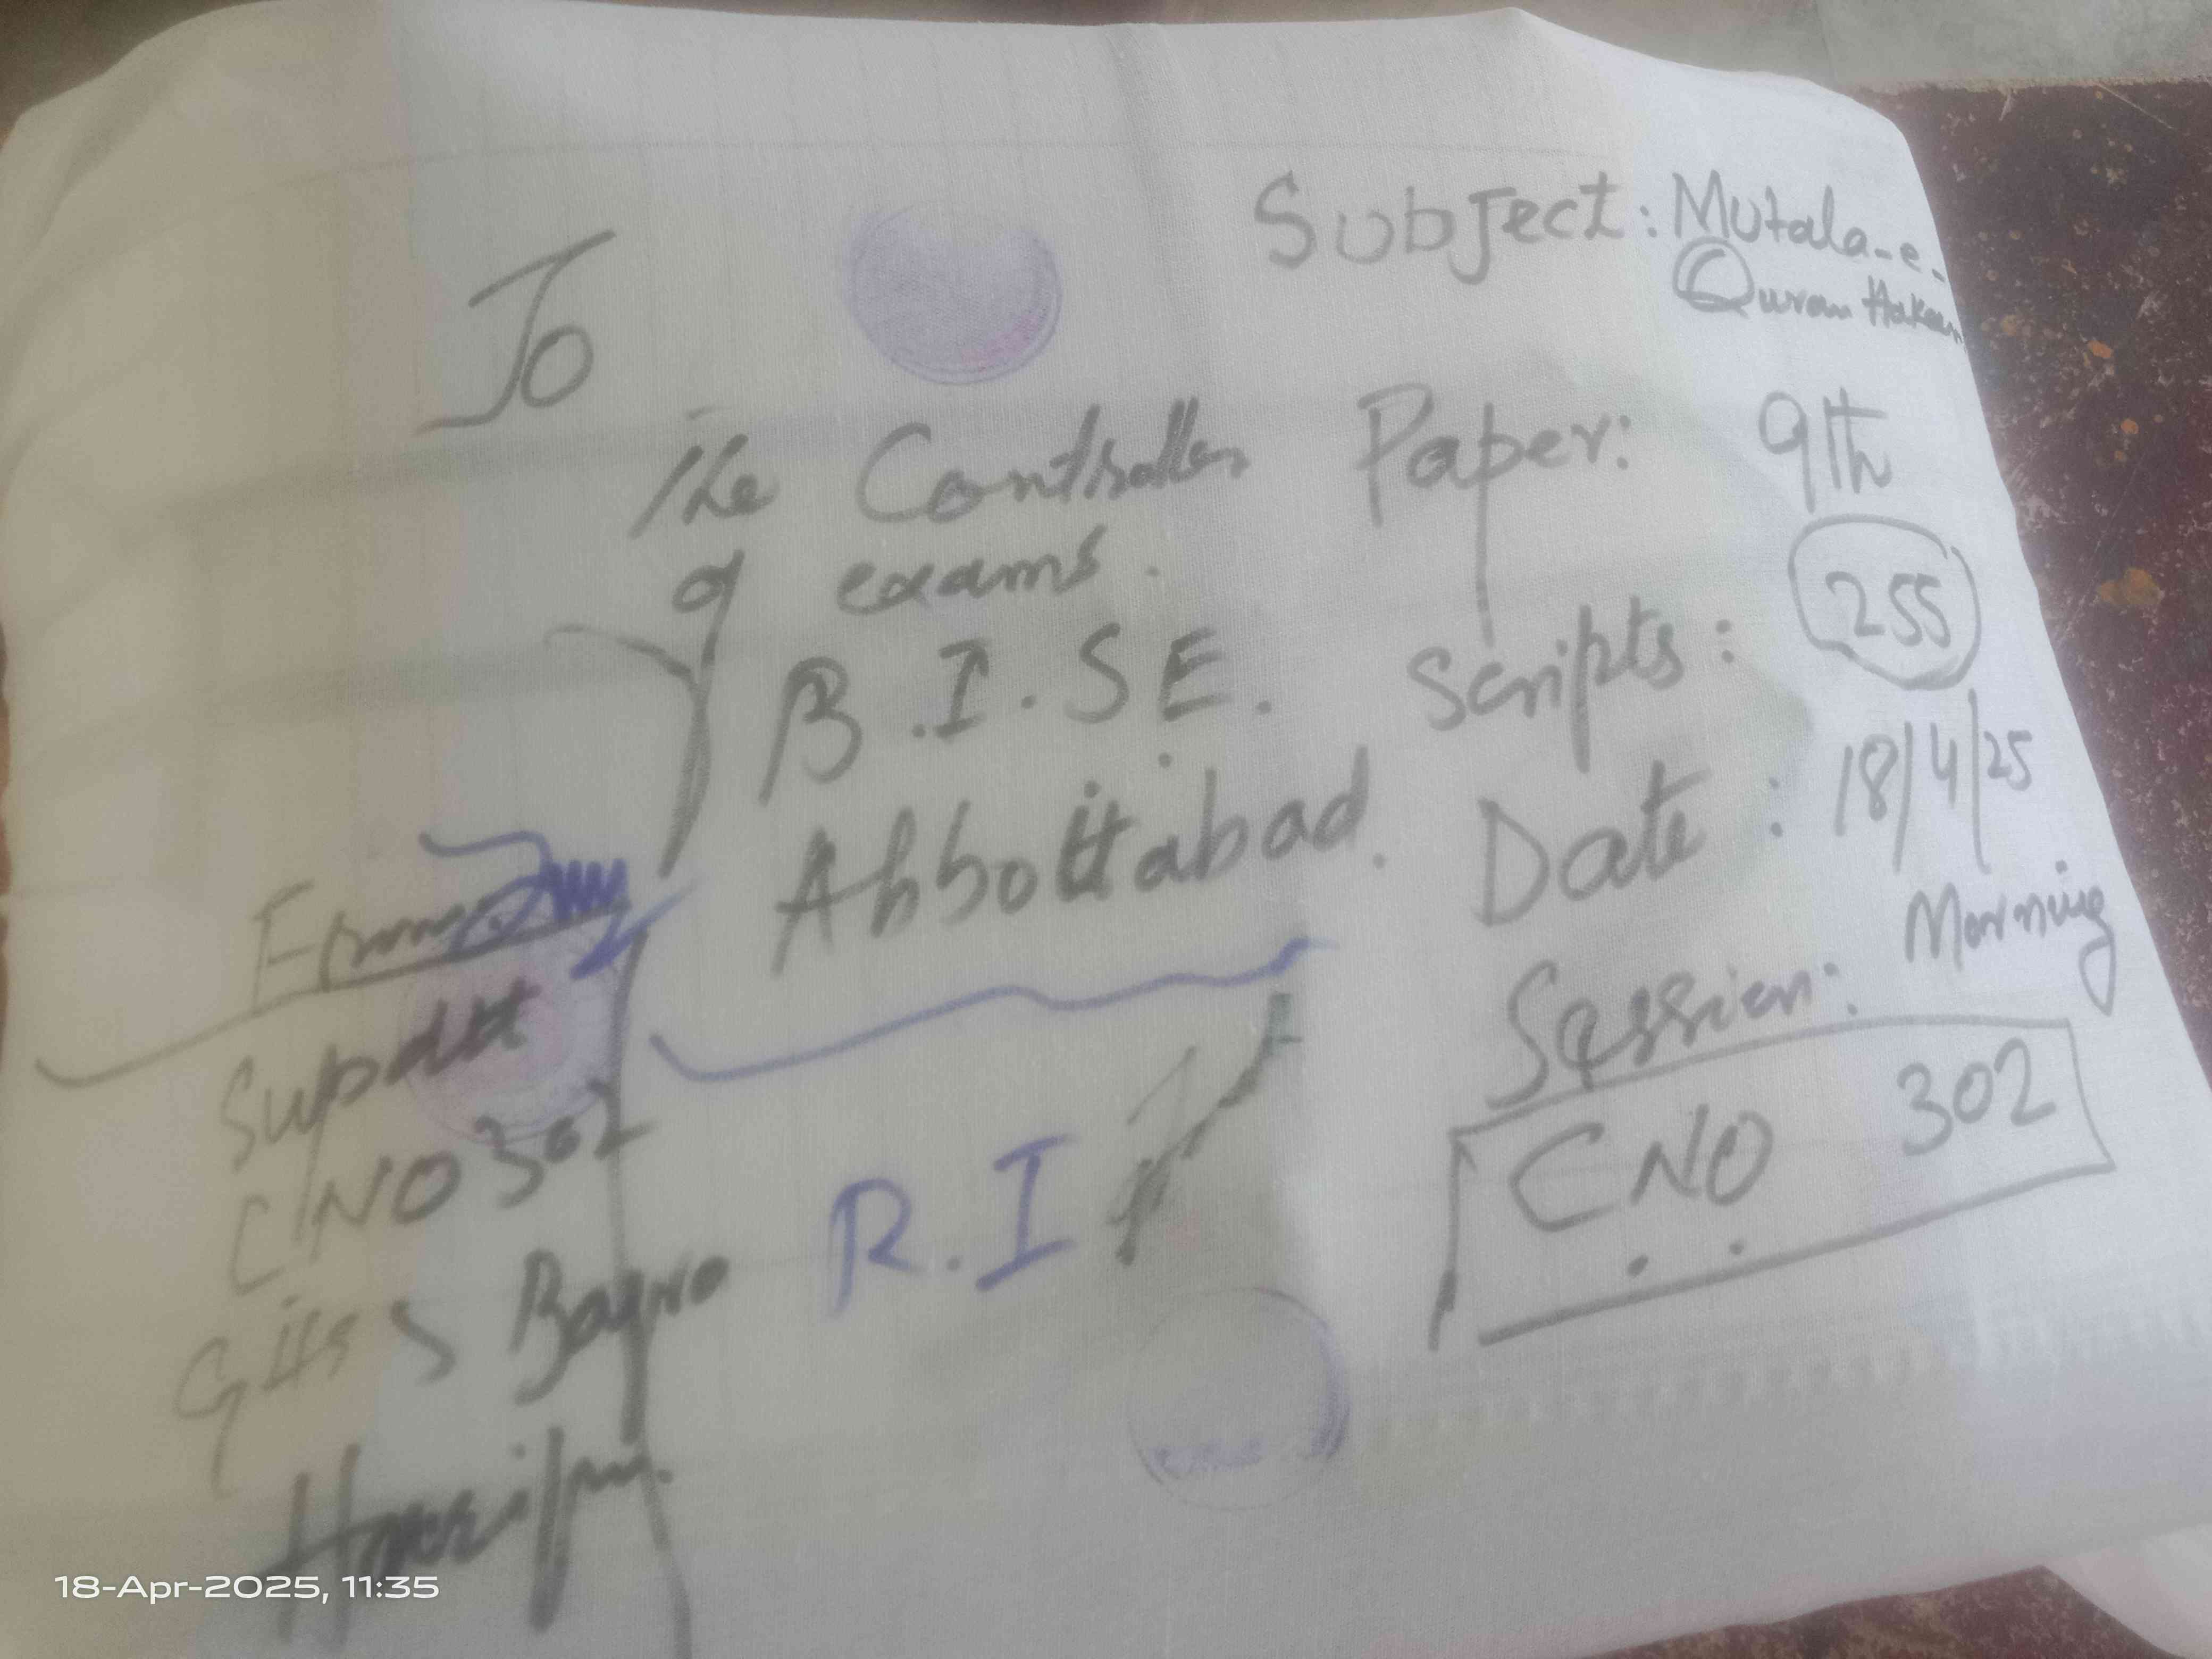 Subject: Mutala-e-
Quran Hakeem
To
The Controller
of exams.
B.I.S.E.
Abbottabad.
Paper: 9th
Scripts: 255
Date: 18/4/25
Session: Morning
CNO 302
From
Supdtt
C/NO 302
GHSS Bagra
Haripur.
R.I
18-Apr-2025, 11:35